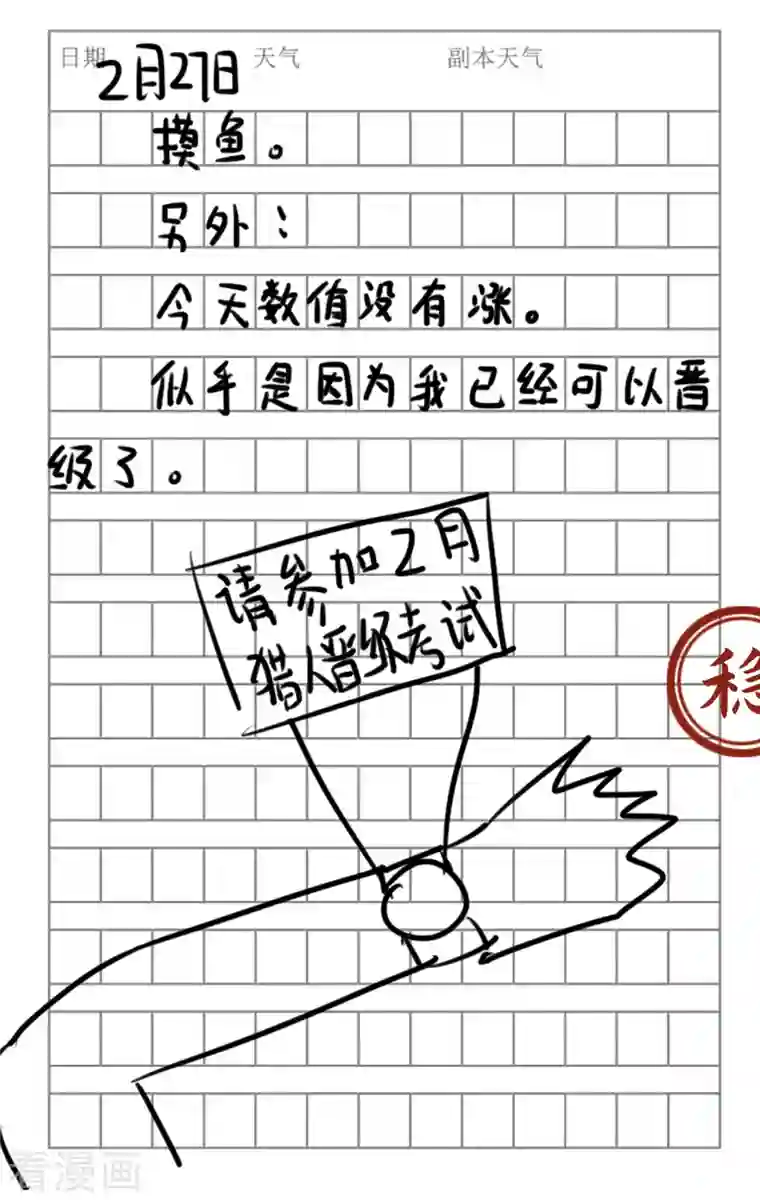 日期 2月27日 天气 副本天气
摸鱼。
另外：
今天数值没有涨。
似乎是因为我已经可以晋
级了。
请参加2月
猎人晋级考试
稳
看漫画